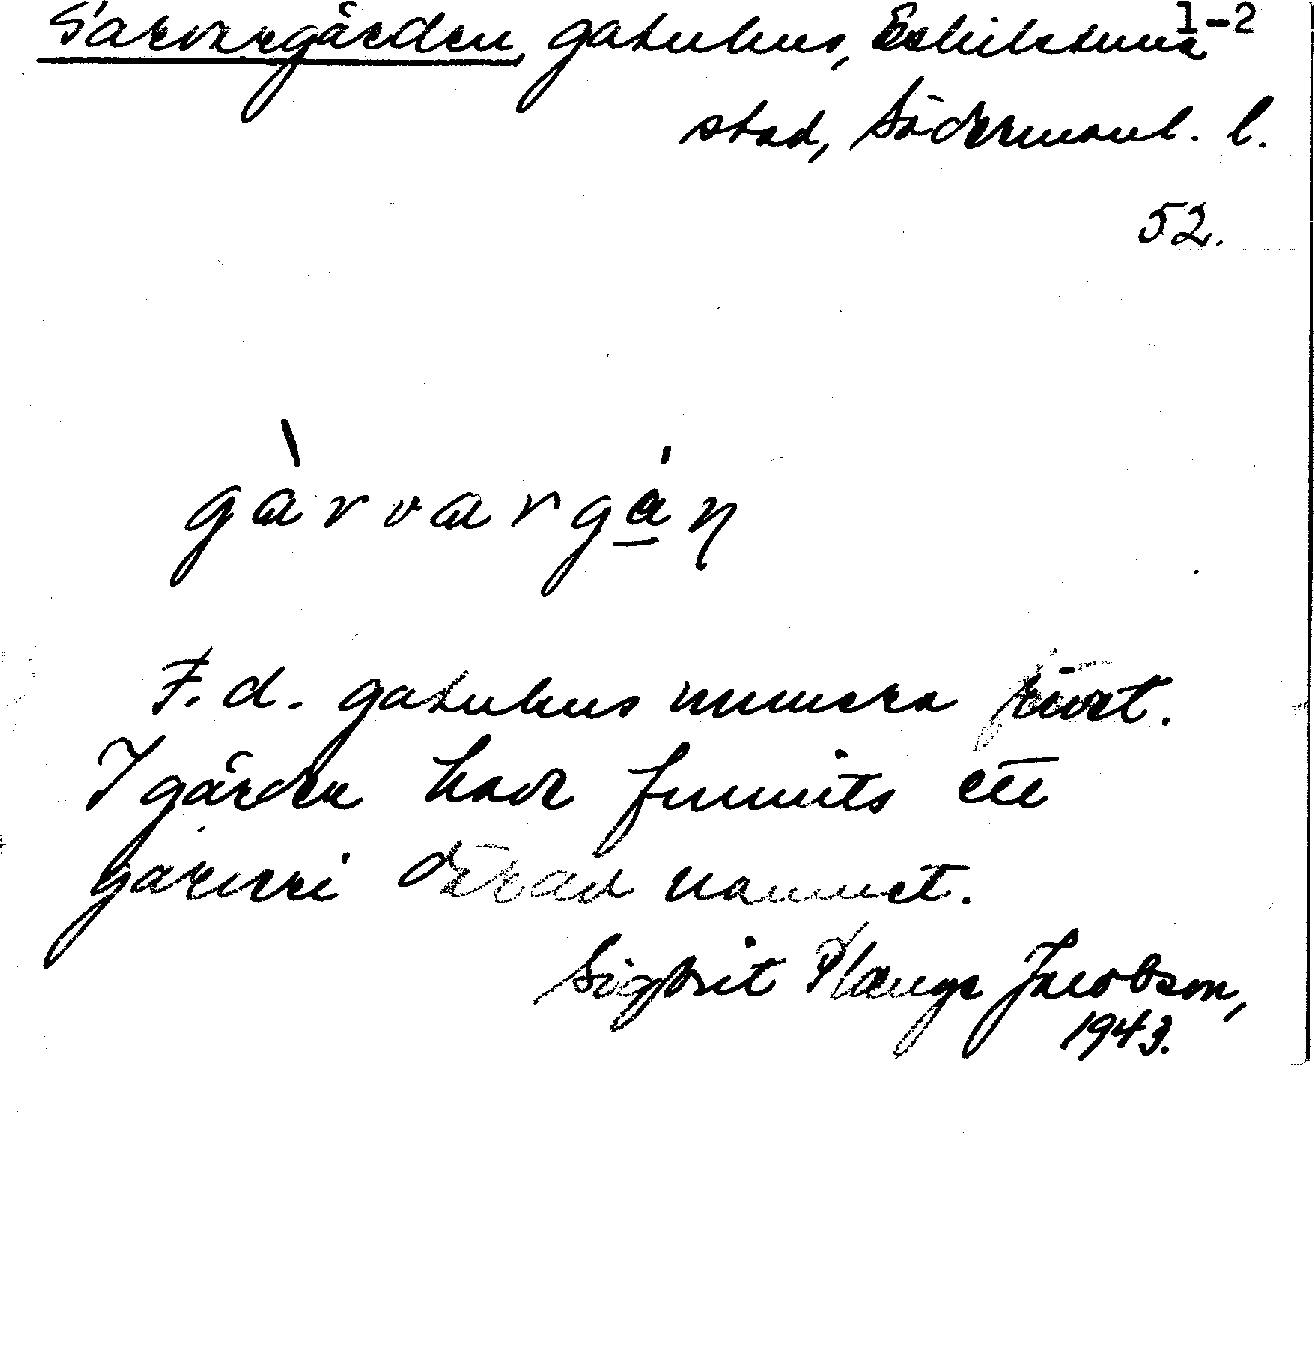 Garvargården, gatuhus, Eskilstuna 1-2
stad, Södermanl. l.
52.
gàrvargá̲ṇ
F.d. gatuhus numera rivet.
I gården hade funnits ett
garveri därav namnet.
Sigbrit Plænge Jacobson,
1943.